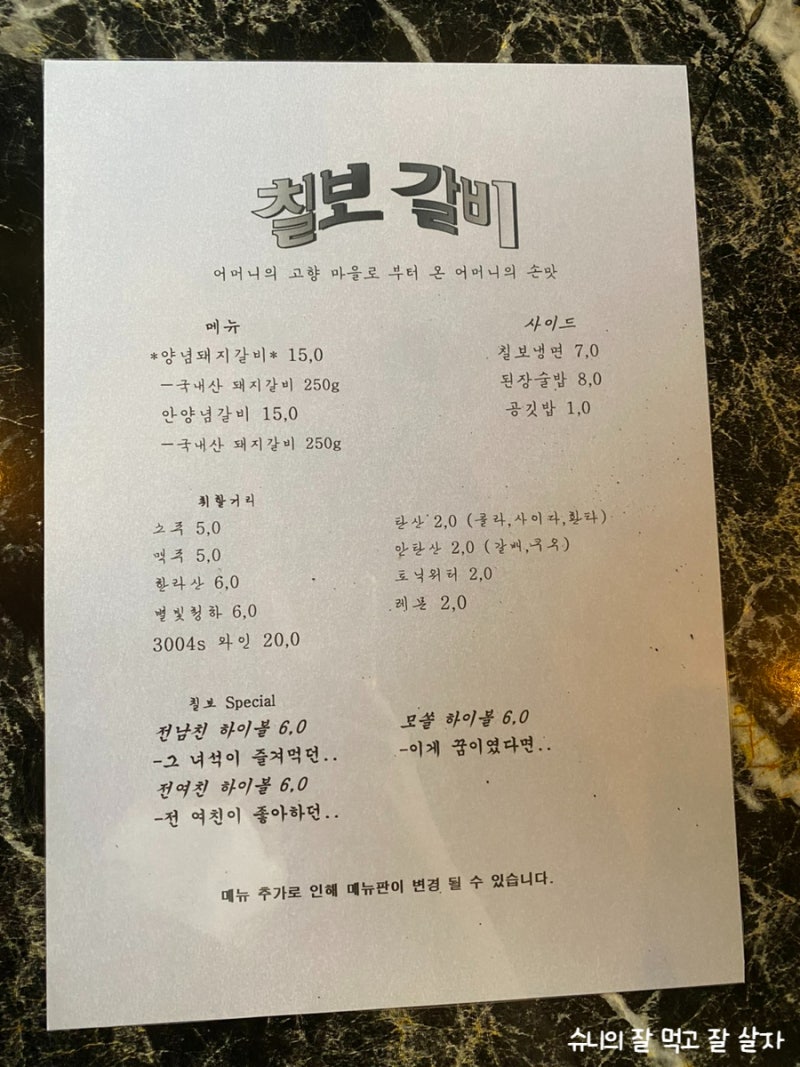 칠보 갈비
어머니의 고향 마을로 부터 온 어머니의 손맛
메뉴
*양념돼지갈비* 15,0
-국내산 돼지갈비 250g
안양념갈비 15,0
-국내산 돼지갈비 250g
사이드
칠보냉면 7,0
된장술밥 8,0
공깃밥 1,0
취할거리
소주 5,0
맥주 5,0
한라산 6,0
별빛청하 6,0
3004s 와인 20,0
탄산 2,0 (콜라,사이다,환타)
안탄산 2,0 (갈배,쿠우)
토닉워터 2,0
레몬 2,0
칠보 Special
전남친 하이볼 6,0
-그 녀석이 즐겨먹던..
전여친 하이볼 6,0
-전 여친이 좋아하던..
모쏠 하이볼 6,0
-이게 꿈이였다면..
메뉴 추가로 인해 메뉴판이 변경 될 수 있습니다.
슈니의 잘 먹고 잘 살자